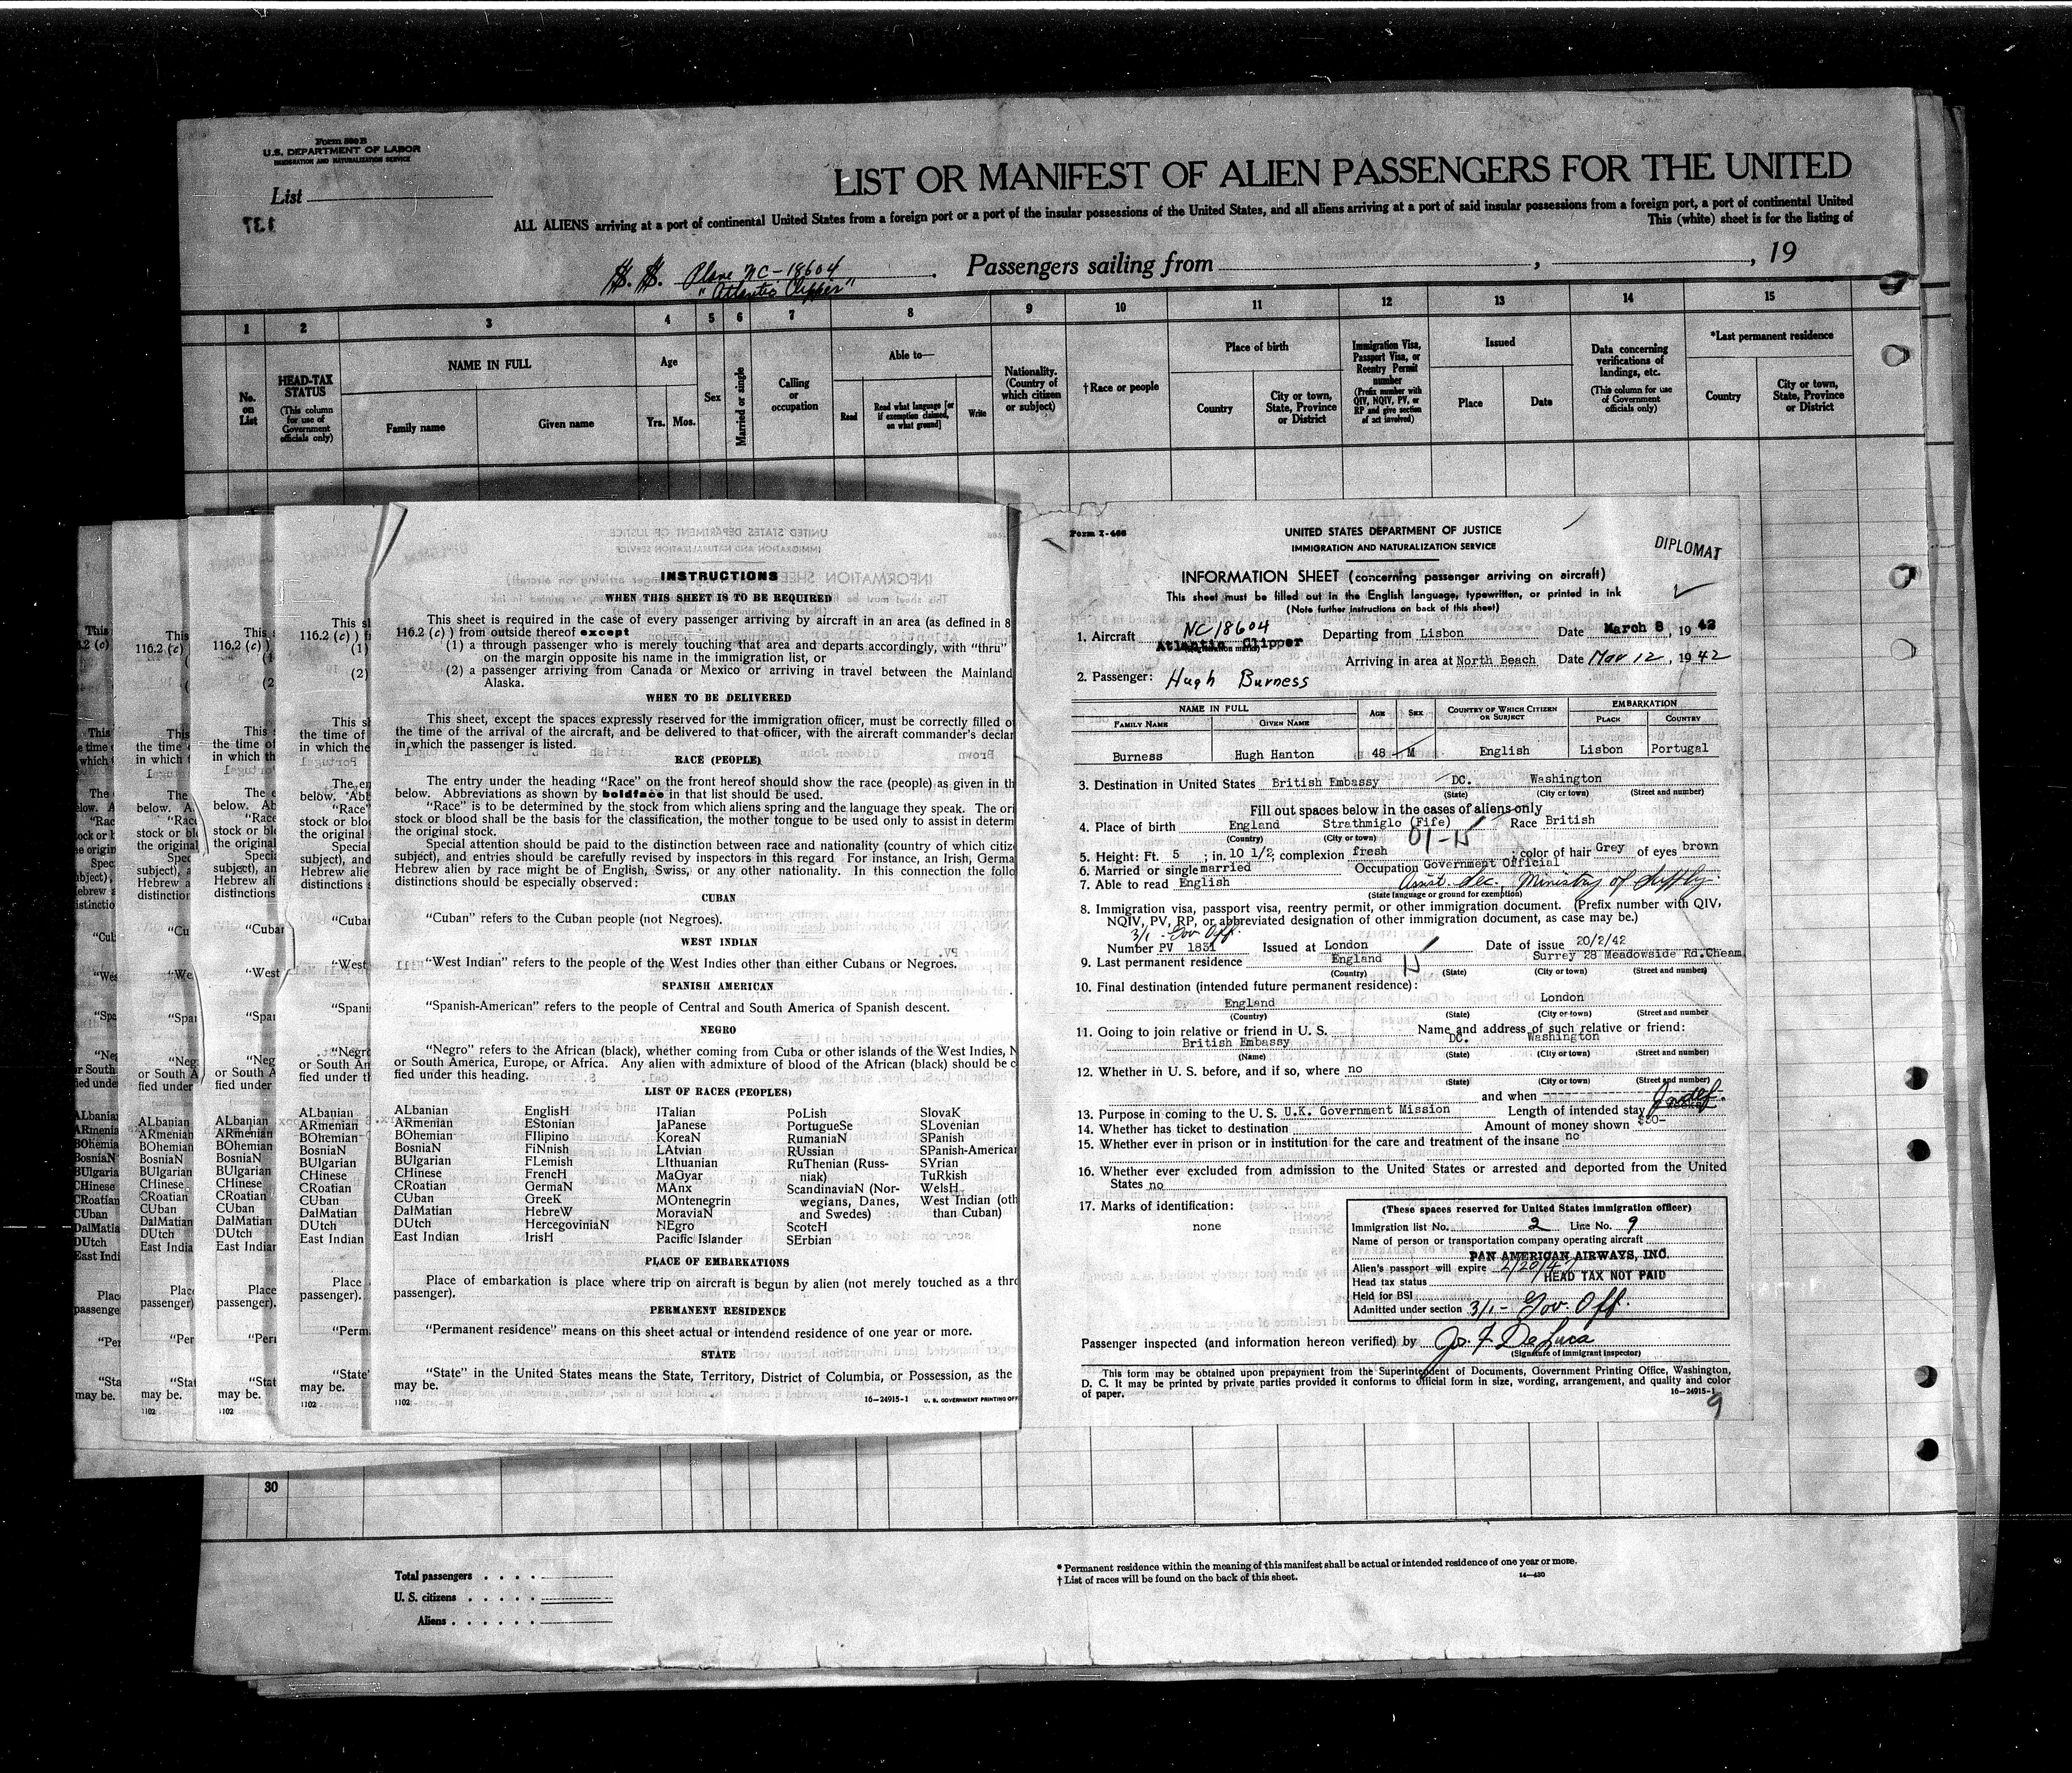 Form 500 B
U.S. DEPARTMENT OF LABOR
IMMIGRATION AND NATURALIZATION SERVICE
List
137
LIST OR MANIFEST OF ALIEN PASSENGERS FOR THE UNITED
ALL ALIENS arriving at a port of continental United States from a foreign port or a port of the insular possessions of the United States, and all aliens arriving at a port of said insular possessions from a foreign port, a port of continental United
This (white) sheet is for the listing of
S. S. Plane NC-18604 Passengers sailing from , , 19
"Atlantic Clipper"
1 2 3 4 5 6 7 8 9 10 11 12 13 14 15
No. on List
HEAD-TAX STATUS (This column for use of Government officials only)
NAME IN FULL
Family name Given name
Age
Yrs. Mos.
Sex
Married or single
Calling or occupation
Able to—
Read Read what language [or if exemption claimed, on what ground] Write
Nationality. (Country of which citizen or subject)
†Race or people
Place of birth
Country City or town, State, Province or District
Immigration Visa, Passport Visa, or Reentry Permit number (Prefix number with QIV, NQIV, PV, or RP and give section of act involved)
Issued
Place Date
Data concerning verifications of landings, etc. (This column for use of Government officials only)
*Last permanent residence
Country City or town, State, Province or District
INSTRUCTIONS
WHEN THIS SHEET IS TO BE REQUIRED
This sheet is required in the case of every passenger arriving by aircraft in an area (as defined in 8
116.2 (c) ) from outside thereof except
(1) a through passenger who is merely touching that area and departs accordingly, with "thru"
on the margin opposite his name in the immigration list, or
(2) a passenger arriving from Canada or Mexico or arriving in travel between the Mainland
Alaska.
WHEN TO BE DELIVERED
This sheet, except the spaces expressly reserved for the immigration officer, must be correctly filled o
the time of the arrival of the aircraft, and be delivered to that officer, with the aircraft commander's declar
in which the passenger is listed.
RACE (PEOPLE)
The entry under the heading "Race" on the front hereof should show the race (people) as given in th
below. Abbreviations as shown by boldface in that list should be used.
"Race" is to be determined by the stock from which aliens spring and the language they speak. The ori
stock or blood shall be the basis for the classification, the mother tongue to be used only to assist in determ
the original stock.
Special attention should be paid to the distinction between race and nationality (country of which citiz
subject), and entries should be carefully revised by inspectors in this regard For instance, an Irish, Germa
Hebrew alien by race might be of English, Swiss, or any other nationality. In this connection the follo
distinctions should be especially observed:
CUBAN
"Cuban" refers to the Cuban people (not Negroes).
WEST INDIAN
"West Indian" refers to the people of the West Indies other than either Cubans or Negroes.
SPANISH AMERICAN
"Spanish-American" refers to the people of Central and South America of Spanish descent.
NEGRO
"Negro" refers to the African (black), whether coming from Cuba or other islands of the West Indies, N
or South America, Europe, or Africa. Any alien with admixture of blood of the African (black) should be c
fied under this heading.
LIST OF RACES (PEOPLES)
ALbanian EnglisH ITalian PoLish SlovaK
ARmenian EStonian JaPanese PortugueSe SLovenian
BOhemian FIlipino KoreaN RumaniaN SPanish
BosniaN FiNnish LAtvian RUssian SPanish-American
BUlgarian FLemish LIthuanian RuThenian (Russ- SYrian
CHinese FrencH MaGyar niak) TuRkish
CRoatian GermaN MAnx ScandinaviaN (Nor- WelsH
CUban GreeK MOntenegrin wegians, Danes, West Indian (oth
DalMatian HebreW MoraviaN and Swedes) than Cuban)
DUtch HercegoviniaN NEgro ScotcH
East Indian IrisH Pacific Islander SErbian
PLACE OF EMBARKATIONS
Place of embarkation is place where trip on aircraft is begun by alien (not merely touched as a thro
passenger).
PERMANENT RESIDENCE
"Permanent residence" means on this sheet actual or intendend residence of one year or more.
STATE
"State" in the United States means the State, Territory, District of Columbia, or Possession, as the
may be.
1102 16—24915-1 U. S. GOVERNMENT PRINTING OFF
Form I-466
UNITED STATES DEPARTMENT OF JUSTICE
IMMIGRATION AND NATURALIZATION SERVICE
DIPLOMAT
INFORMATION SHEET (concerning passenger arriving on aircraft)
This sheet must be filled out in the English language, typewritten, or printed in ink
(Note further instructions on back of this sheet)
NC18604
1. Aircraft Atlantic Clipper Departing from Lisbon Date March 8, 19 42
Arriving in area at North Beach Date Mar 12, 1942
2. Passenger: Hugh Burness
NAME IN FULL AGE SEX COUNTRY OF WHICH CITIZEN OR SUBJECT EMBARKATION
FAMILY NAME GIVEN NAME PLACE COUNTRY
Burness Hugh Hanton 48 M English Lisbon Portugal
3. Destination in United States British Embassy DC. Washington
(State) (City or town) (Street and number)
Fill out spaces below in the cases of aliens only
4. Place of birth England Strathmiglo (Fife) Race British
(Country) (City or town)
5. Height: Ft. 5 ; in. 10 1/2, complexion fresh ; color of hair Grey of eyes brown
6. Married or single married Occupation Government Official
7. Able to read English Asst. Sec. Ministry of Supply.
(State language or ground for exemption)
8. Immigration visa, passport visa, reentry permit, or other immigration document. (Prefix number with QIV,
NQIV, PV, RP, or abbreviated designation of other immigration document, as case may be.)
3/1 - Gov Off.
Number PV 1831 Issued at London Date of issue 20/2/42
9. Last permanent residence England Surrey 28 Meadowside Rd.Cheam
(Country) (State) (City or town) (Street and number)
10. Final destination (intended future permanent residence):
England London
(Country) (State) (City or town) (Street and number
11. Going to join relative or friend in U. S. Name and address of such relative or friend:
British Embassy DC. Washington
(Name) (State) (City or town) (Street and number)
12. Whether in U. S. before, and if so, where no
(State) (City or town) (Street and number)
and when
13. Purpose in coming to the U. S. U.K. Government Mission Length of intended stay Indef.
14. Whether has ticket to destination Amount of money shown $50-
15. Whether ever in prison or in institution for the care and treatment of the insane no
16. Whether ever excluded from admission to the United States or arrested and deported from the United
States no
17. Marks of identification:
none
(These spaces reserved for United States immigration officer)
Immigration list No. 2 Line No. 9
Name of person or transportation company operating aircraft
PAN AMERICAN AIRWAYS, INC.
Alien's passport will expire 2/20/47
Head tax status HEAD TAX NOT PAID
Held for BSI
Admitted under section 3/1 - Gov Off.
Passenger inspected (and information hereon verified) by Jo. F. DeLuca
(Signature of immigrant inspector)
This form may be obtained upon prepayment from the Superintendent of Documents, Government Printing Office, Washington,
D. C. It may be printed by private parties provided it conforms to official form in size, wording, arrangement, and quality and color
of paper. 16—24915-1
9
30
Total passengers
U. S. citizens
Aliens
* Permanent residence within the meaning of this manifest shall be actual or intended residence of one year or more.
† List of races will be found on the back of this sheet.
14—430